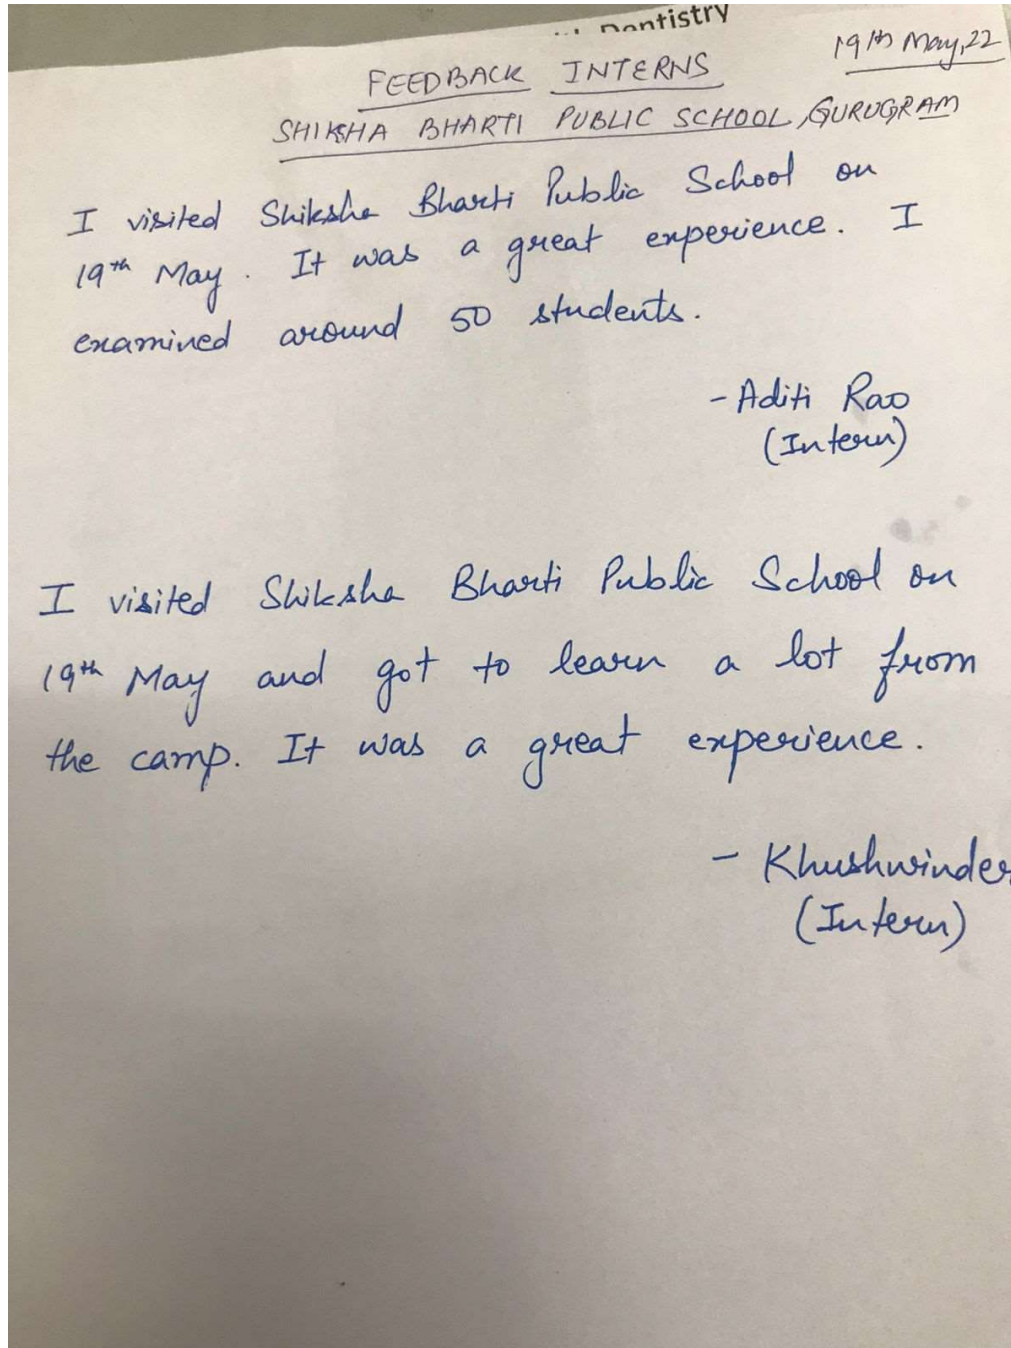 Dentistry
19th May, 22
FEEDBACK INTERNS
SHIKSHA BHARTI PUBLIC SCHOOL, GURUGRAM
I visited Shiksha Bharti Public School on
19th May. It was a great experience. I
examined around 50 students.
- Aditi Rao
(Intern)
I visited Shiksha Bharti Public School on
19th May and got to learn a lot from
the camp. It was a great experience.
- Khushwinder
(Intern)